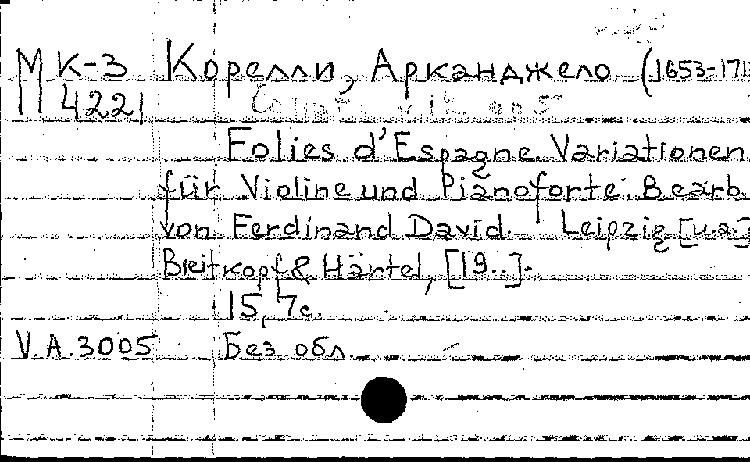 МК-3 Корелли, Арканджело (1653-171
4221
Folies d'Espagne. Variationen
für Violine und Pianoforte. Bearb
von Ferdinand David. Leipzig [u.a.]
Breitkopf & Härtel, [19..].
15, 7 с.
V.A.3005 Без обл.